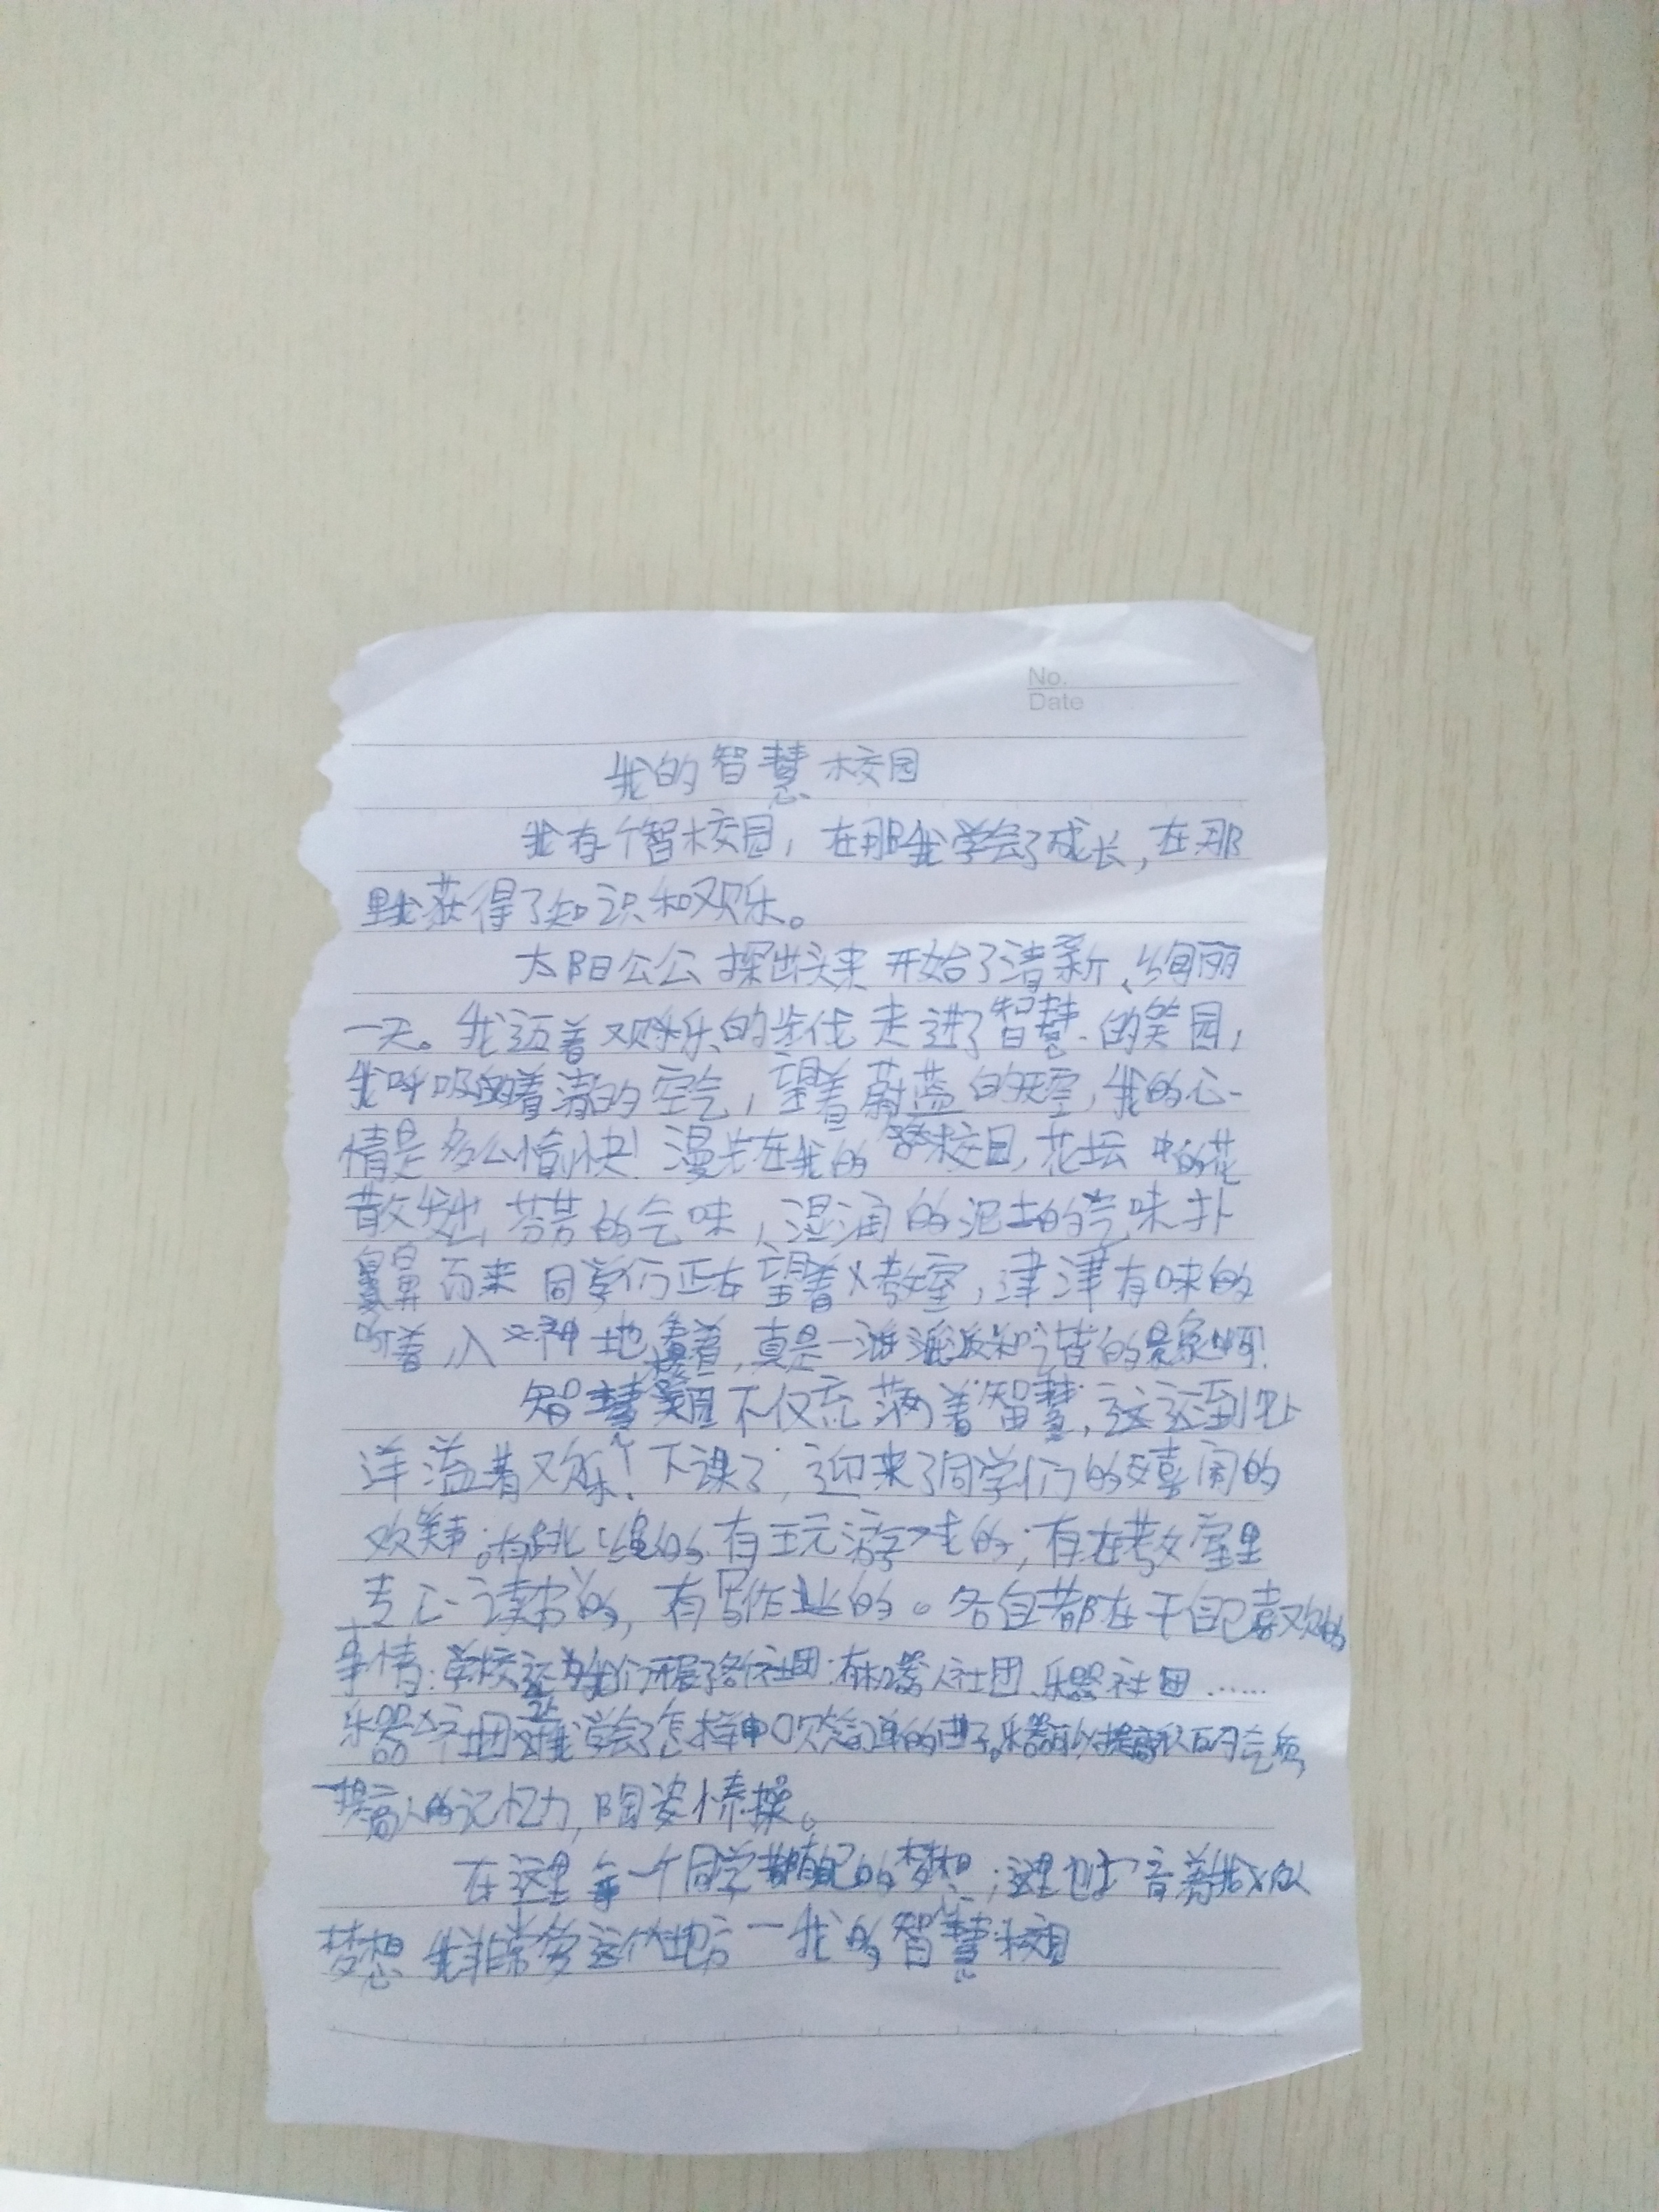 No.
Date
我的智慧校园
我有个智校园，在那我学会了成长，在那
里我获得了知识和欢乐。
太阳公公探出头来 开始了清新、绚丽
一天。我迈着欢乐的步伐 走进了智慧的笑园，
我呼吸着清的空气，望着蔚蓝的天空，我的心
情是多么愉快！漫步在我的 校园，花坛中的花
散发出芬芳的气味，湿润的泥土的气味扑
鼻而来 同学们正在望着教室，津津有味的
听着，入神地 着，真是一派和谐的景象啊！
智慧 园不仅充满着智慧，这还到处
洋溢着欢乐！下课了，迎来了同学们的嬉闹的
欢 。有跳绳的 有玩游戏的；有在教室里
专心读书的，有写作业的。各自都在干自己喜欢的
事情；学校还为我们开展了各 社团：有机器人社团、乐器社团……
乐器社团让我学会了怎样 吹简单的曲子。乐器可以提高人的气质，
提高人的记忆力，陶姿情操。
在这里每一个同学都有自己的梦想；这里也
梦想 我非常 这个地方—我的智慧校园